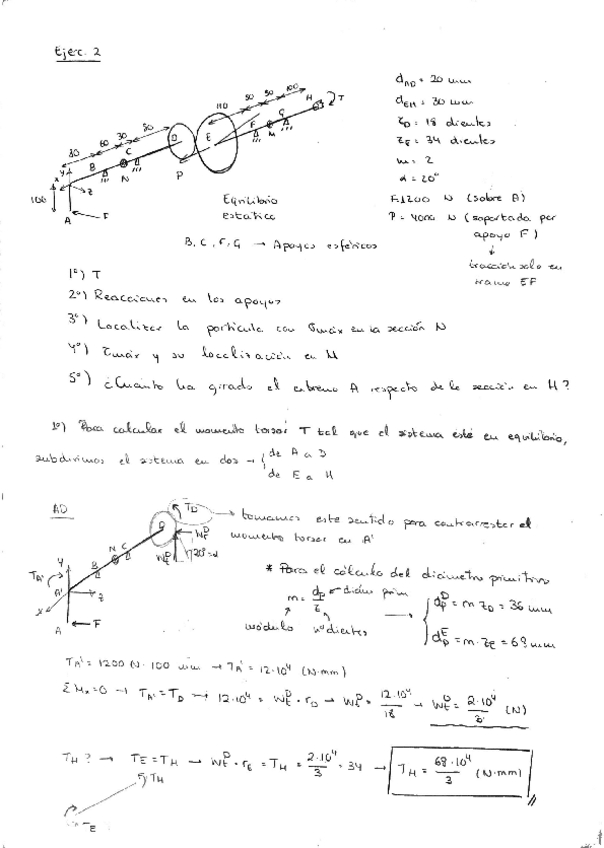 Ejer. 2
d_AD = 20 mm
d_EH = 30 mm
z_D = 18 dientes
z_E = 34 dientes
m = 2
α = 20°
F = 1200 N (sobre A)
P = 4000 N (soportada por apoyo F)
↓
tracción solo en tramo EF
30 60 30 50 110 50 50 100
100
A B C D E F G H T
N M P F
x y z
Equilibrio
estático
B, C, F, G → Apoyos esféricos
1º) T
2º) Reacciones en los apoyos
3º) Localizar la partícula con σmáx en la sección N
4º) τmáx y su localización en M
5º) ¿Cuánto ha girado el extremo A respecto de la sección en H?
1º) Para calcular el momento torsor T tal que el sistema esté en equilibrio,
subdividimos el sistema en dos → { de A a D
de E a H
AD
T_D → tomamos este sentido para contrarrestar el
momento torsor en A'
T_A' y x z A' A F B N C D 20° = α
* Para el cálculo del diámetro primitivo
m = dp/z ← diám prim
módulo nº dientes
→ { dp^D = m·z_D = 36 mm
dp^E = m·z_E = 68 mm
T_A' = 1200 N · 100 mm → T_A' = 12·10⁴ (N·mm)
ΣMx = 0 → T_A' = T_D → 12·10⁴ = Wt^D · r_D → Wt^D = 12·10⁴/18 → Wt^D = 2·10⁴/3 (N)
T_H? → T_E = T_H → Wt^D · r_E = T_H = 2·10⁴/3 · 34 → T_H = 68·10⁴/3 (N·mm)
T_H
T_E